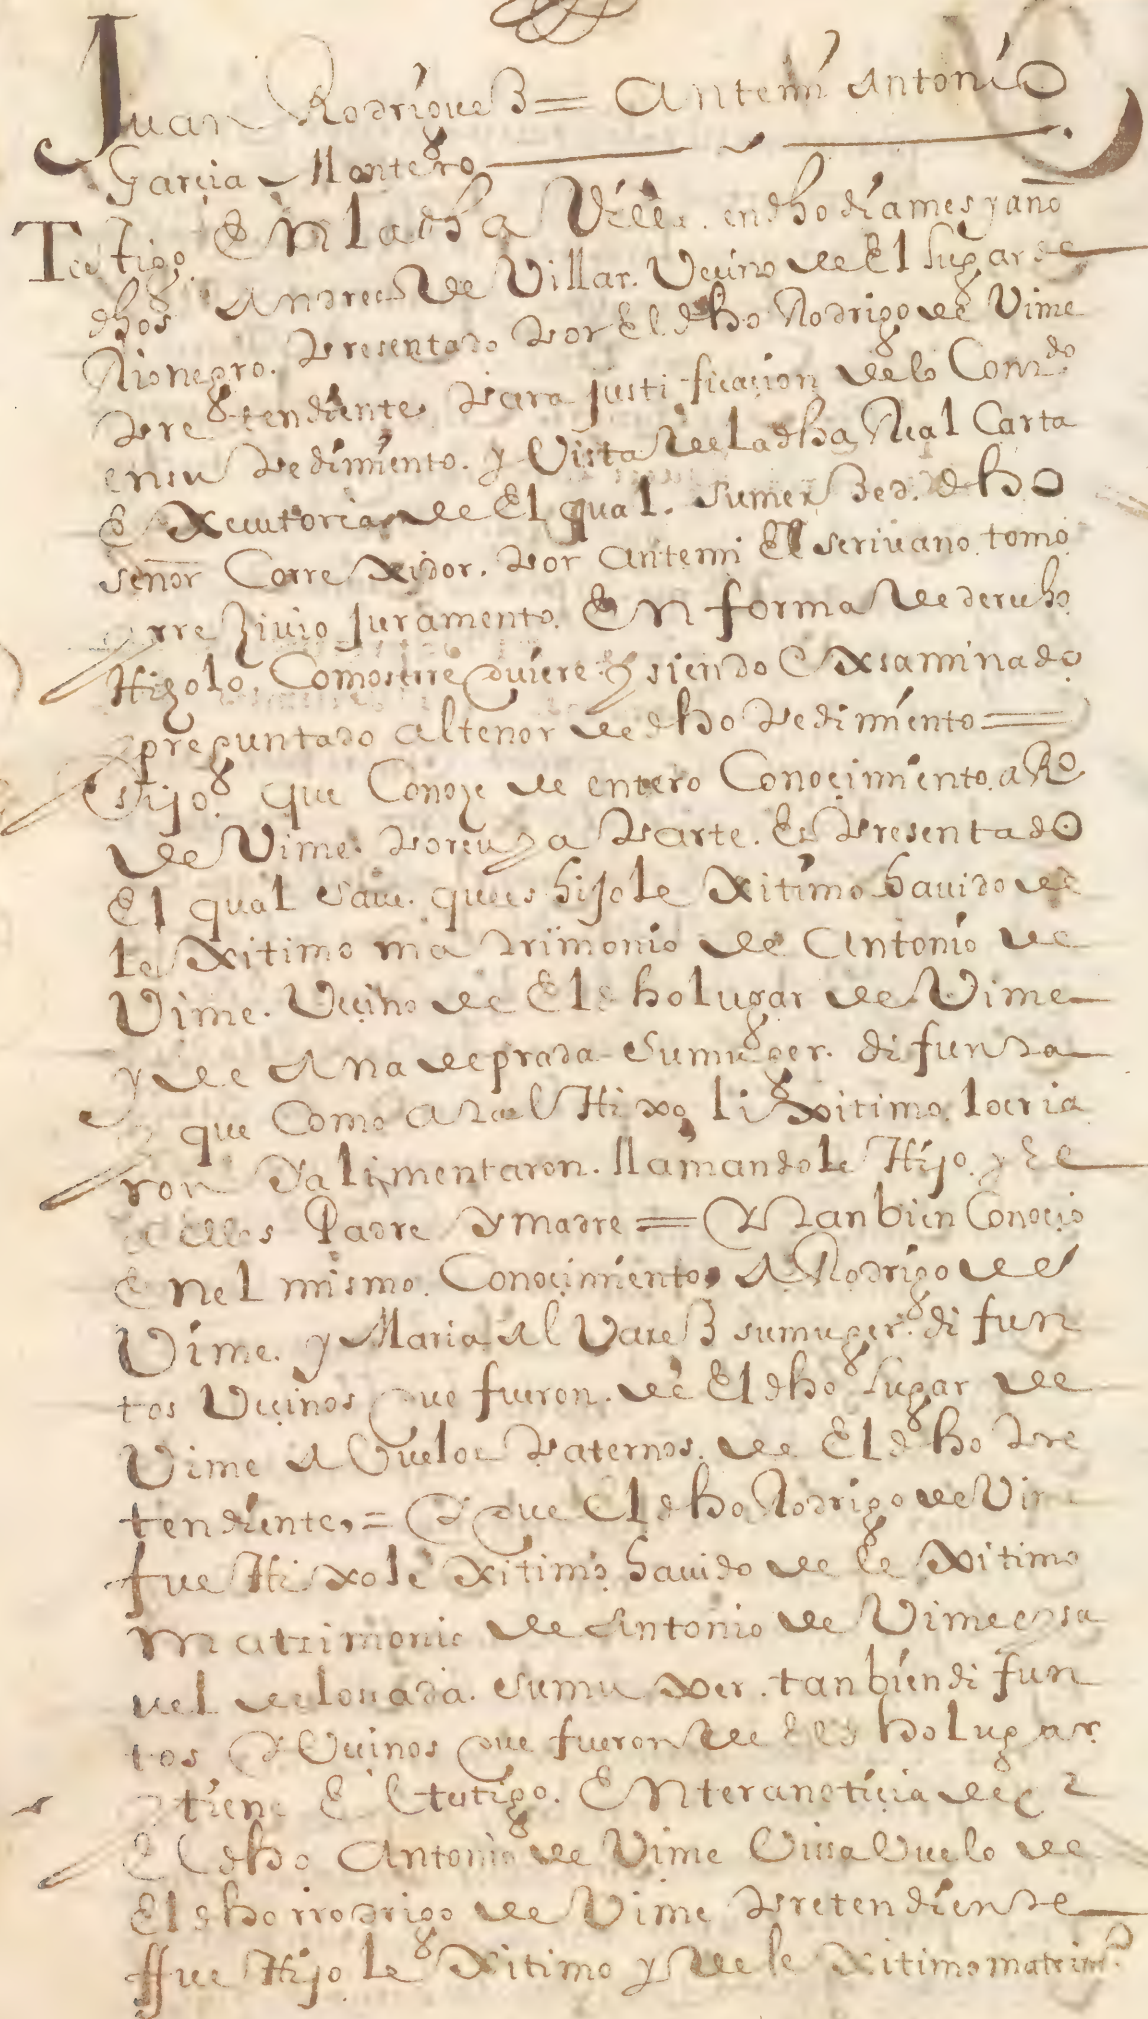 Juan Rodrigueß = Antemi Antonio
Garçia Montero
Testigo En la dha Villa. en dho dia mes y año
dhos Andres de Villar. Veçino de El lugar de
Rionegro. Presentado Por El dho Rodrigo de Vime
Pretendiente, Para justificaçion de lo Contdo
en su Pedimiento. y Vista de la dha Real Carta
Executoria, de El qual. su merzed. dho
señor Correxidor. Por antemi El scrivano tomo
rrezivio juramento. En forma de derecho
Hizolo. Como se rrequiere y siendo Exsaminado
preguntado al tenor de dho Pedimiento =
Dijo. que Conoze de entero Conoçimiento. a Ro
de Vime. Por cuya Parte. Es Presentado
El qual save. que es hijo lexitimo havido de
lexitimo matrimonio de Antonio de
Vime. Veçino de El dho lugar de Vime
y de Ana de prada su muger. difunta
que Como a tal Hixo lixitimo, lo cria
ron Y alimentaron. llamandole Hijo. y el
a ellos Padre Y madre = Y tanbien Conoçio
En el mismo. Conoçimiento, A Rodrigo de
Vime. y Maria Alvareß su muger. difun
tos Veçinos que fueron. de El dho lugar de
Vime Avuelos Paternos. de El dho Pre
tendiente, = Y que El dho Rodrigo de Vime
fue Hixo lexitimo havido de lexitimo
matrimonio de Antonio de Vime e ysa
vel de lossada. su muxer. tanbien difun
tos Y Veçinos que fueron de El dho lugar
y tiene El testigo. Entera notiçia de q
El dho Antonio de Vime Vissavuelo de
El dho rrodrigo de Vime Pretendiente
ffue Hijo lexitimo y de lexitimo matrimo